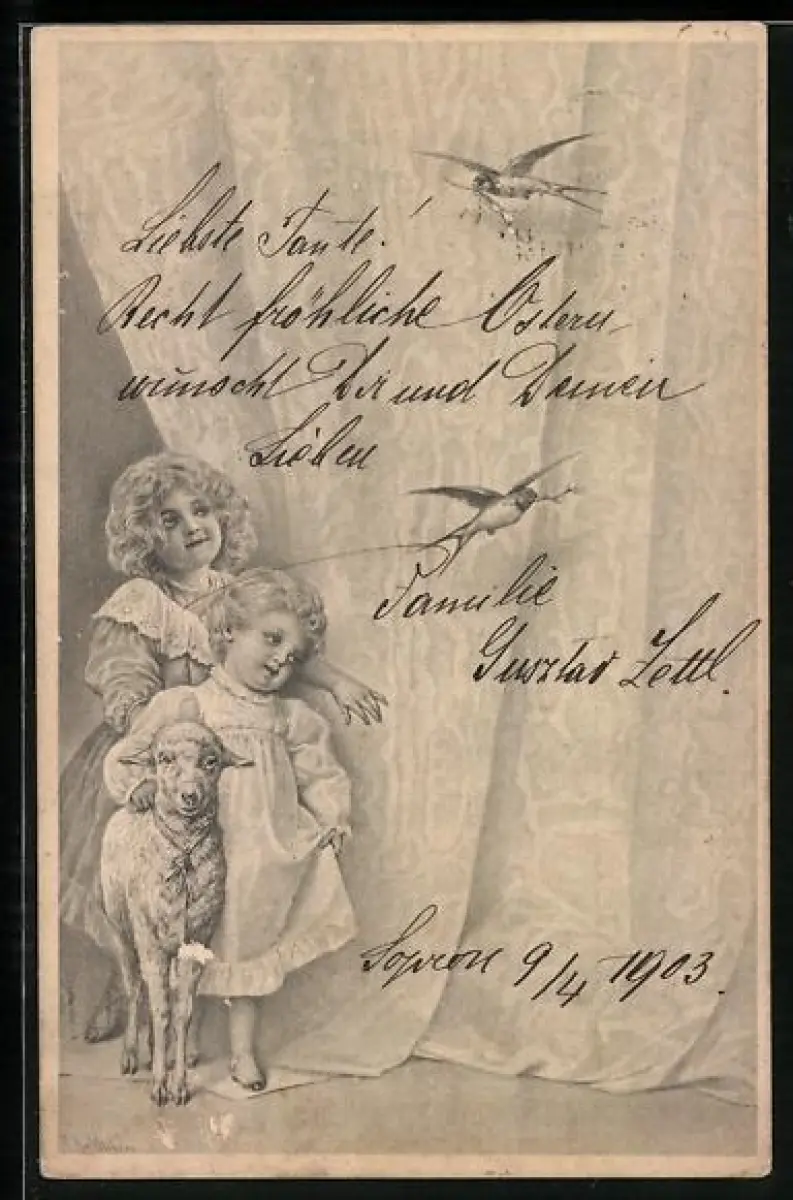 Liebste Tante!
Recht fröhliche Ostern
wünscht Dir und Deinen
Lieben
Familie
Gusztav Zettl.
Sopron 9/4 1903.